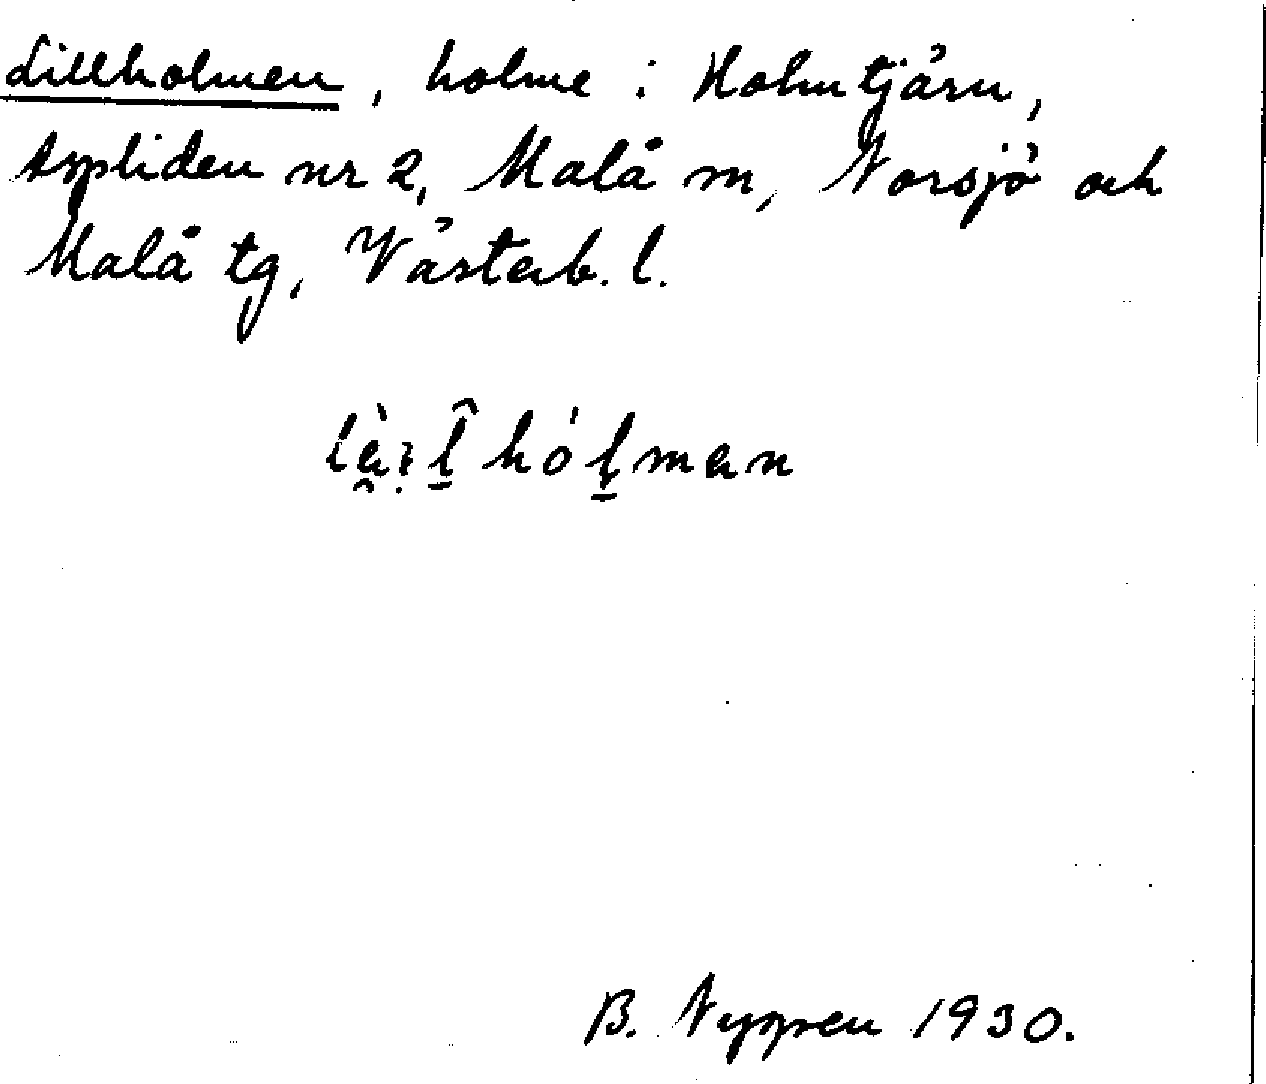 Lillholmen, holme i Holmtjärn,
Aspliden nr 2, Malå sn, Norsjö och
Malå tg, Västerb. l.
B. Nygren 1930.